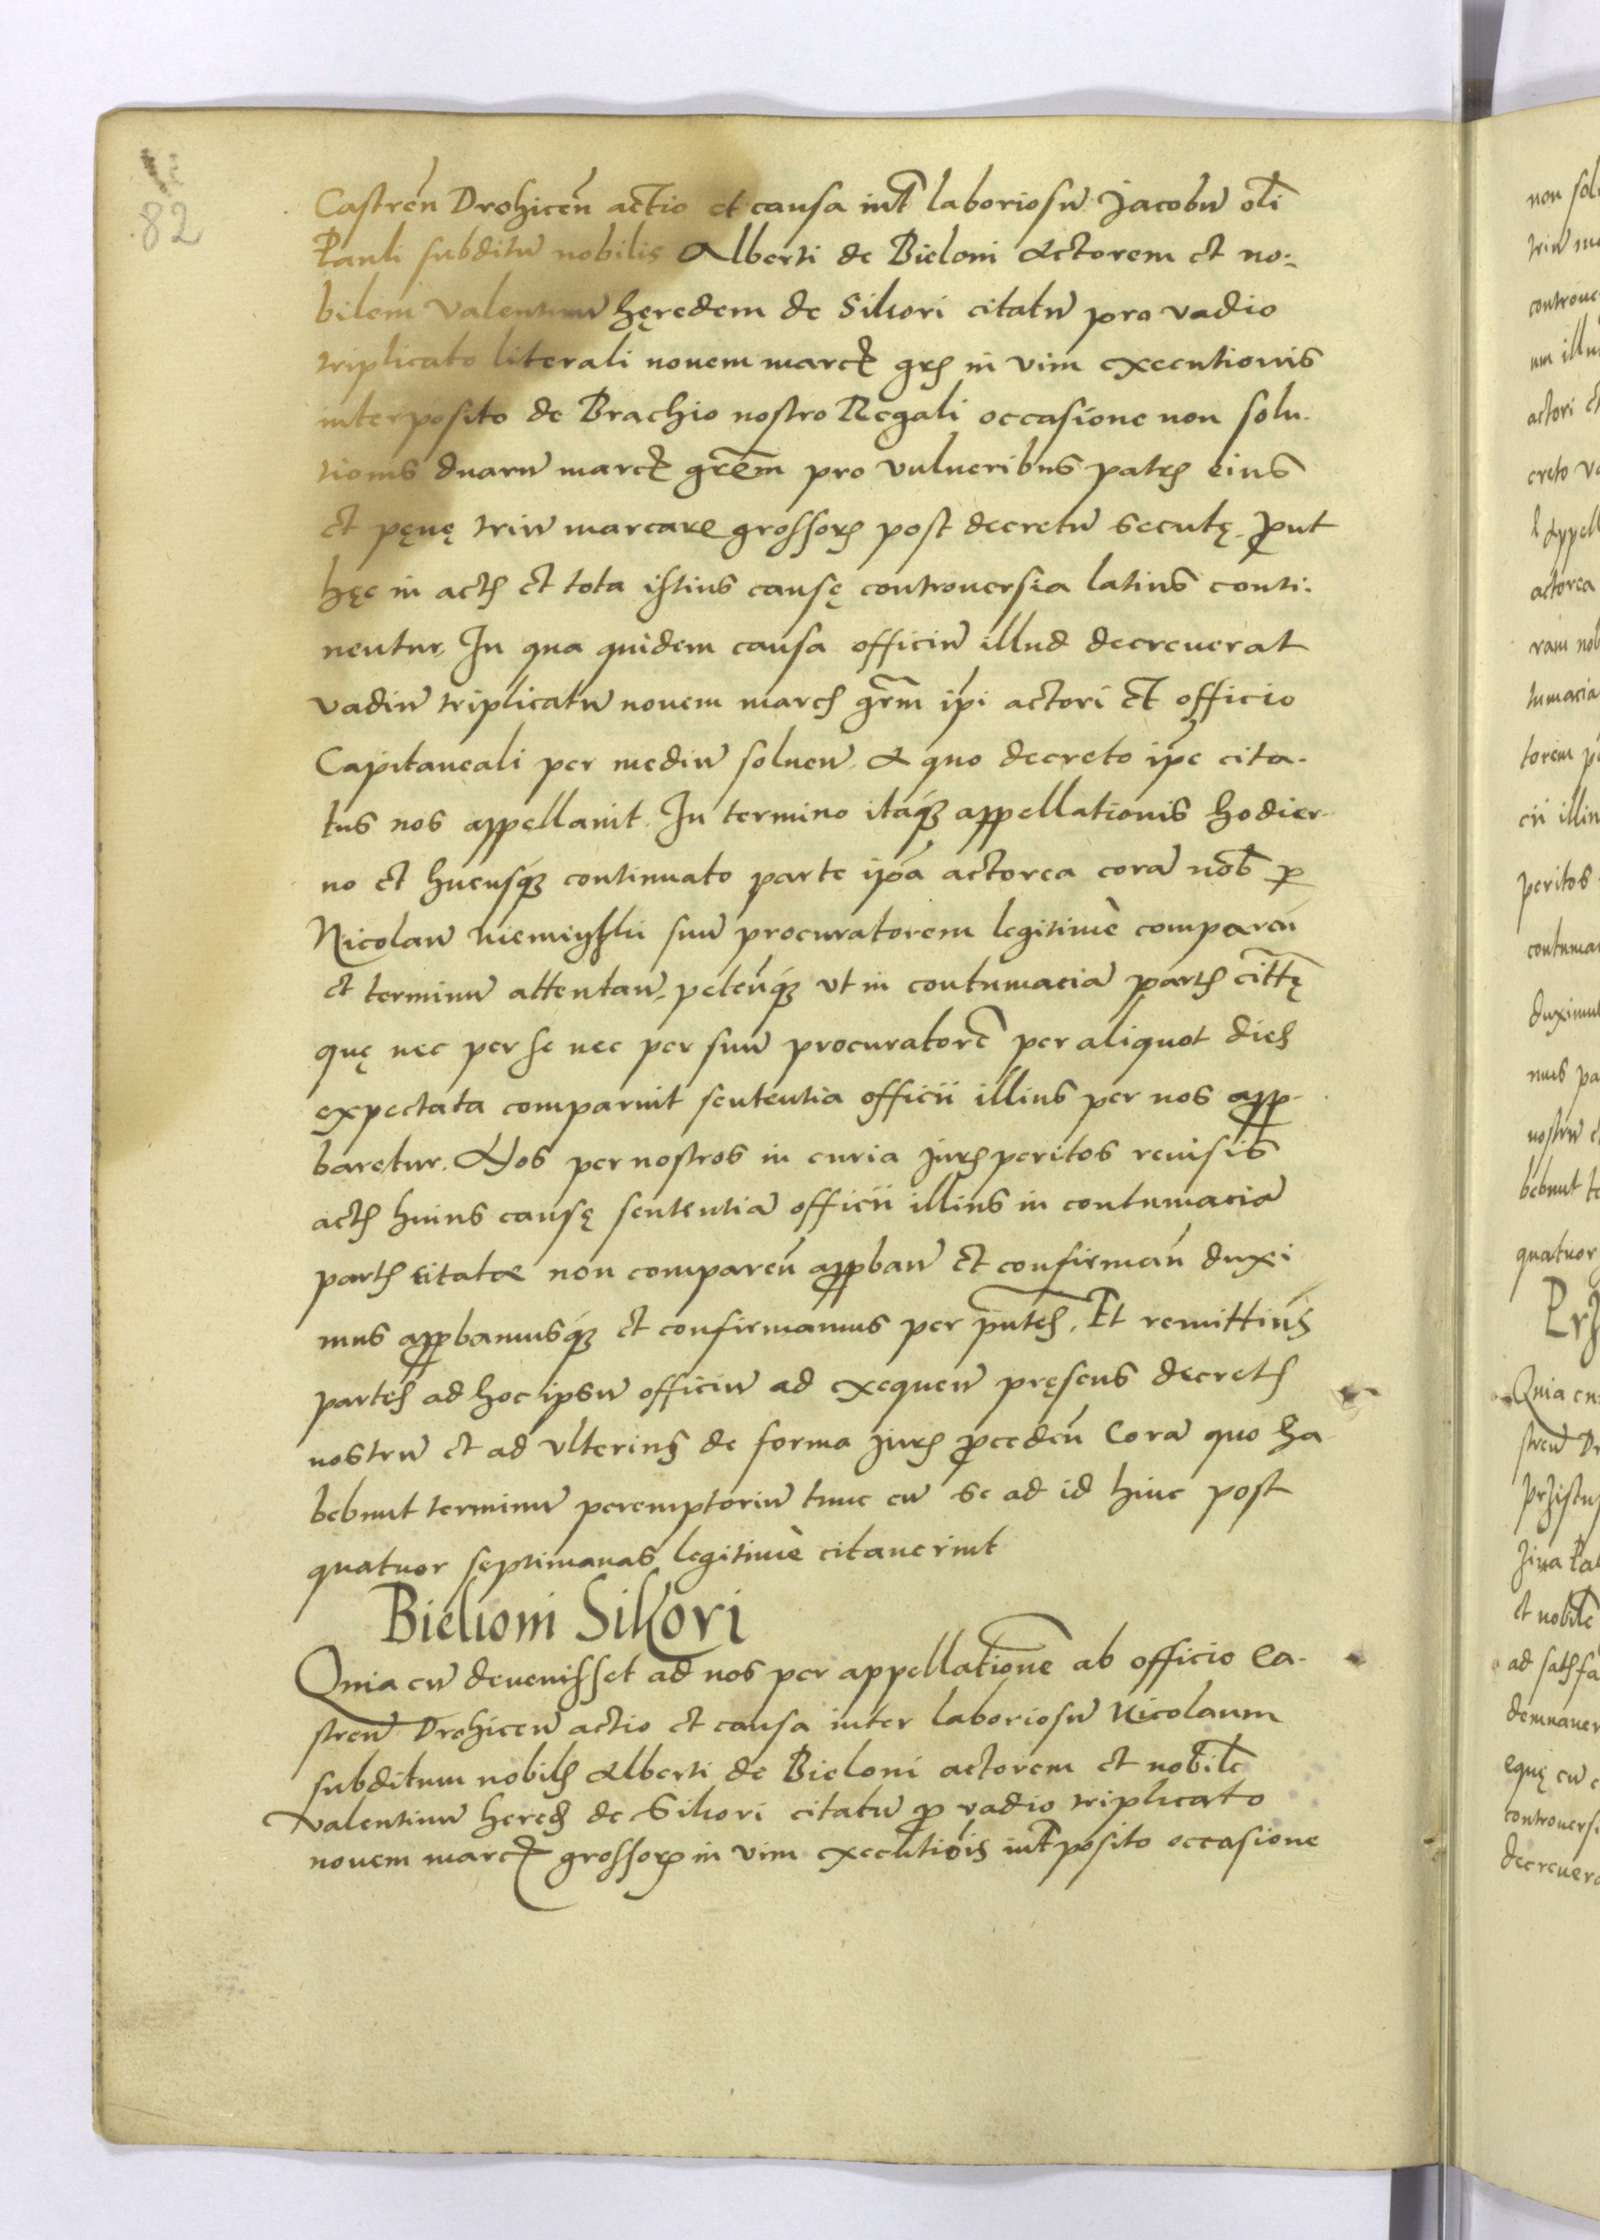 82
Castren̄ Drohicen̄ actio et causa int̄ laboriosū Jacobū oli
Pauli subditū nobilis Alberti de Bieloni Actorem et no:
bilem Valentinū hęredem de Sikori citatū pro vadio
triplicato literali novem marcꝝ grs in vim executionis
interposito de Brachio nostro Regali occasione non solu-
tionis duarū marcꝝ grem̄ pro vulneribus patris eius
et pęnę triū marcarꝝ grossorꝝ post decretū secutę. ꝓut
hęc in actis et tota istius causę controversia latius conti:
nentur, In qua quidem causa officiū illud decreverat
vadiū triplicatū novem marcꝝ grm̄ ip̄i actori et officio
Capitaneali per mediū soluen̄ A quo decreto ip̄e cita-
tus nos appellauit. In termino itaqꝫ appellationis hodier-
no et hucusqꝫ continuato parte ip̄a actorea corā nob̄ ꝑ
Nicolaū Niemiyski suū procuratorem legitimè comparen̄
et terminū attentan̄, peten̄qꝫ vt in contumaciā partis cittę
quę nec per se nec per suū procuratorē per aliquot dies
expectata comparuit sententia officii illius per nos apꝓ-
baretur. Nos per nostros in curia Juris peritos reuisis
actis huius causę sententiā officii illius in contumaciā
partis citatæ non comparen̄ apꝓban̄ et confirman̄ duxi
mus apꝓbamusqꝫ et confirmamus per pn̄tes. Et remittim̄s
partes ad hoc ipsū officiū ad exequen̄ pręsens decretū
nostrū et ad vlterius de forma Juris ꝓceden̄ Corā quo ha
bebunt terminū peremptoriū tunc cū se ad id hinc post
quatuor septimanas legitimè citauerint
Bielioni Sikori
Quia cū devenisset ad nos per appellationē ab officio Ca-
stren̄ Drohicen̄ actio et causa inter laboriosū Nicolaum
subditum nobilis Alberti de Bieloni actorem et nobilē
Valentinū hered̄ de Sikori citatū ꝓ vadio triplicato
novem marcꝝ grossorꝝ in vim executiōis int̄posito occasione